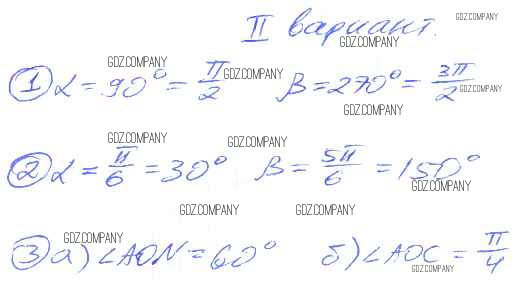 II вариант.
GDZ.COMPANY
GDZ.COMPANY
GDZ.COMPANY
① α = 90° = π/2 GDZ.COMPANY β = 270° = 3π/2
GDZ.COMPANY
GDZ.COMPANY
GDZ.COMPANY GDZ.COMPANY
② α = π/6 = 30° β = 5π/6 = 150°
GDZ.COMPANY
GDZ.COMPANY GDZ.COMPANY
GDZ.COMPANY
③ а) ∠AON = 60° б) ∠AOC = π/4
GDZ.COMPANY